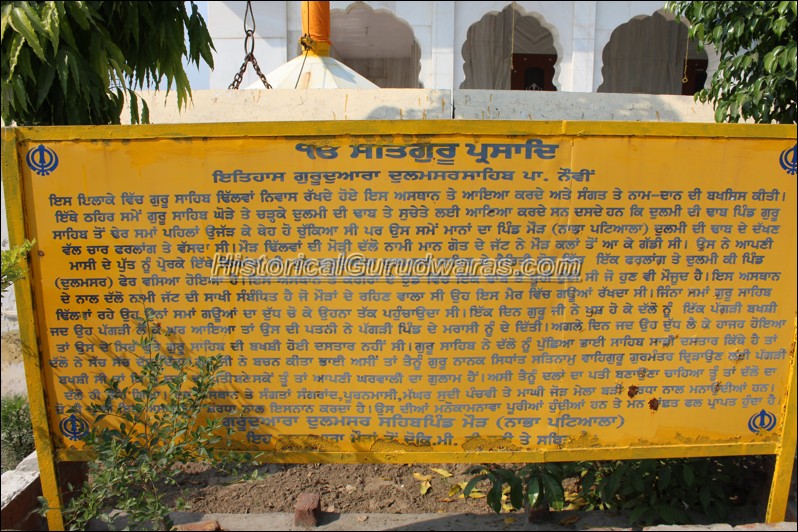 ੴ ਸਤਿਗੁਰੂ ਪ੍ਰਸਾਦਿ
ਇਤਿਹਾਸ ਗੁਰੂਦੁਆਰਾ ਦੁਲਮਸਰ ਸਾਹਿਬ ਪਾ. ਨੌਵੀਂ
ਇਸ ਇਲਾਕੇ ਵਿੱਚ ਗੁਰੂ ਸਾਹਿਬ ਢਿੱਲਵਾਂ ਨਿਵਾਸ ਰੱਖਦੇ ਹੋਏ ਇਸ ਅਸਥਾਨ ਤੇ ਆਇਆ ਕਰਦੇ ਅਤੇ ਸੰਗਤ ਤੇ ਨਾਮ-ਦਾਨ ਦੀ ਬਖਸਿਸ ਕੀਤੀ।
ਇੱਥੇ ਠਹਿਰ ਸਮੇਂ ਗੁਰੂ ਸਾਹਿਬ ਘੋੜੇ ਤੇ ਚੜ੍ਹਕੇ ਦੁਲਮੀ ਦੀ ਢਾਬ ਤੇ ਸੁਚੇਤੇ ਲਈ ਆਇਆ ਕਰਦੇ ਸਨ ਦਸਦੇ ਹਨ ਕਿ ਦੁਲਮੀ ਦੀ ਢਾਬ ਪਿੰਡ ਗੁਰੂ
ਸਾਹਿਬ ਤੋਂ ਢੇਰ ਸਮਾਂ ਪਹਿਲਾਂ ਉੱਜੜ ਕੇ ਥੇਹ ਹੋ ਚੁੱਕਿਆ ਸੀ ਪਰ ਉਸ ਸਮੇਂ ਮਾਨਾਂ ਦਾ ਪਿੰਡ ਮੌੜ (ਨਾਭਾ ਪਟਿਆਲਾ) ਦੁਲਮੀ ਦੀ ਢਾਬ ਦੇ ਦੱਖਣ
ਵੱਲ ਚਾਰ ਫਰਲਾਂਗ ਤੇ ਵੱਸਦਾ ਸੀ। ਮੌੜ ਢਿੱਲਵਾਂ ਦੀ ਮੋੜੀ ਦੱਲੋ ਨਾਮੀ ਮਾਨ ਗੋਤ ਦੇ ਜੱਟ ਨੇ ਮੌੜ ਕਲਾਂ ਤੋਂ ਆ ਕੇ ਗੱਡੀ ਸੀ। ਉਸ ਨੇ ਆਪਣੀ
ਮਾਸੀ ਦੇ ਪੁੱਤ ਨੂੰ ਪ੍ਰੇਰਕੇ ਇੱਥੇ ਇੱਕ ਫਰਲਾਂਗ ਤੇ ਦੁਲਮੀ ਕੀ ਪਿੰਡ
HistoricalGurudwaras.com
(ਦੁਲਮਸਰ) ਫੇਰ ਵਸਿਆ ਹੋਇਆ ਸੀ ਜੋ ਹੁਣ ਵੀ ਮੌਜੂਦ ਹੈ। ਇਸ ਅਸਥਾਨ
ਦੇ ਨਾਲ ਦੱਲੋ ਨਾਮੀ ਜੱਟ ਦੀ ਸਾਖੀ ਸੰਬੰਧਿਤ ਹੈ ਜੋ ਮੌੜਾਂ ਦੇ ਰਹਿਣ ਵਾਲਾ ਸੀ ਉਹ ਇਸ ਮੈਰ ਵਿੱਚ ਗਊਆਂ ਰੱਖਦਾ ਸੀ। ਜਿੰਨਾ ਸਮਾਂ ਗੁਰੂ ਸਾਹਿਬ
ਢਿੱਲਵਾਂ ਰਹੇ ਉਹ ਓਨਾਂ ਸਮਾਂ ਗਊਆਂ ਦਾ ਦੁੱਧ ਚੋ ਕੇ ਉਹਨਾਂ ਤੱਕ ਪਹੁੰਚਾਉਂਦਾ ਸੀ। ਇੱਕ ਦਿਨ ਗੁਰੂ ਜੀ ਨੇ ਖੁਸ਼ ਹੋ ਕੇ ਦੱਲੋ ਨੂੰ ਇੱਕ ਪੱਗੜੀ ਬਖਸ਼ੀ
ਜਦ ਉਹ ਪੱਗੜੀ ਲੈਕੇ ਘਰ ਆਇਆ ਤਾਂ ਉਸ ਦੀ ਪਤਨੀ ਨੇ ਪੱਗੜੀ ਪਿੰਡ ਦੇ ਮਰਾਸੀ ਨੂੰ ਦੇ ਦਿੱਤੀ। ਅਗਲੇ ਦਿਨ ਜਦ ਉਹ ਦੁੱਧ ਲੈ ਕੇ ਹਾਜਰ ਹੋਇਆ
ਤਾਂ ਉਸ ਦੇ ਸਿਰ ਗੁਰੂ ਸਾਹਿਬ ਦੀ ਬਖਸ਼ੀ ਹੋਈ ਦਸਤਾਰ ਨਹੀਂ ਸੀ। ਗੁਰੂ ਸਾਹਿਬ ਨੇ ਦੱਲੋ ਨੂੰ ਪੁੱਛਿਆ ਭਾਈ ਸਾਹਿਬ ਸਾਡੀ ਦਸਤਾਰ ਕਿੱਥੇ ਹੈ ਤਾਂ
ਦੱਲੋ ਨੇ ਸੱਚ ਸੱਚ ਨੇ ਬਚਨ ਕੀਤਾ ਭਾਈ ਅਸੀਂ ਤਾਂ ਤੈਨੂੰ ਗੁਰੂ ਨਾਨਕ ਸਿਧਾਂਤ ਸਤਿਨਾਮੁ ਵਾਹਿਗੁਰੂ ਗੁਰਮੰਤਰ ਦ੍ਰਿੜਾਉਣ ਲਈ ਪੱਗੜੀ
ਬਖਸ਼ੀ ਸੀ ਤੂੰ ਤਾਂ ਆਪਣੀ ਘਰਵਾਲੀ ਦਾ ਗੁਲਾਮ ਹੈਂ। ਅਸੀਂ ਤੈਨੂੰ ਦਲਾਂ ਦਾ ਪਤੀ ਬਣਾਉਣਾ ਚਾਹਿਆ ਤੂੰ ਤਾਂ ਦੱਲੋ ਦਾ
ਦੱਲੋ ਹੀ ਅਸਥਾਨ ਤੇ ਸੰਗਤਾਂ ਸੰਗਰਾਂਦ, ਪੂਰਨਮਾਸੀ, ਮੱਘਰ ਸੁਦੀ ਪੰਚਵੀ ਤੇ ਮਾਘੀ ਜੋੜ ਮੇਲਾ ਬੜੀ ਸ਼ਰਧਾ ਨਾਲ ਮਨਾਉਂਦੀਆਂ ਹਨ।
ਸ਼ਰਧਾ ਨਾਲ ਇਸਨਾਨ ਕਰਦਾ ਹੈ। ਉਸ ਦੀਆਂ ਮਨੋਕਾਮਨਾਵਾਂ ਪੂਰੀਆਂ ਹੁੰਦੀਆਂ ਹਨ ਤੇ ਮਨ ਇੱਛਤ ਫਲ ਪ੍ਰਾਪਤ ਹੁੰਦਾ ਹੈ।
ਗੁਰਦੁਆਰਾ ਦੁਲਮਸਰ ਸਹਿਬ ਪਿੰਡ ਮੌੜ (ਨਾਭਾ ਪਟਿਆਲਾ)
ਇਹ ਮੌੜਾਂ ਤੋਂ